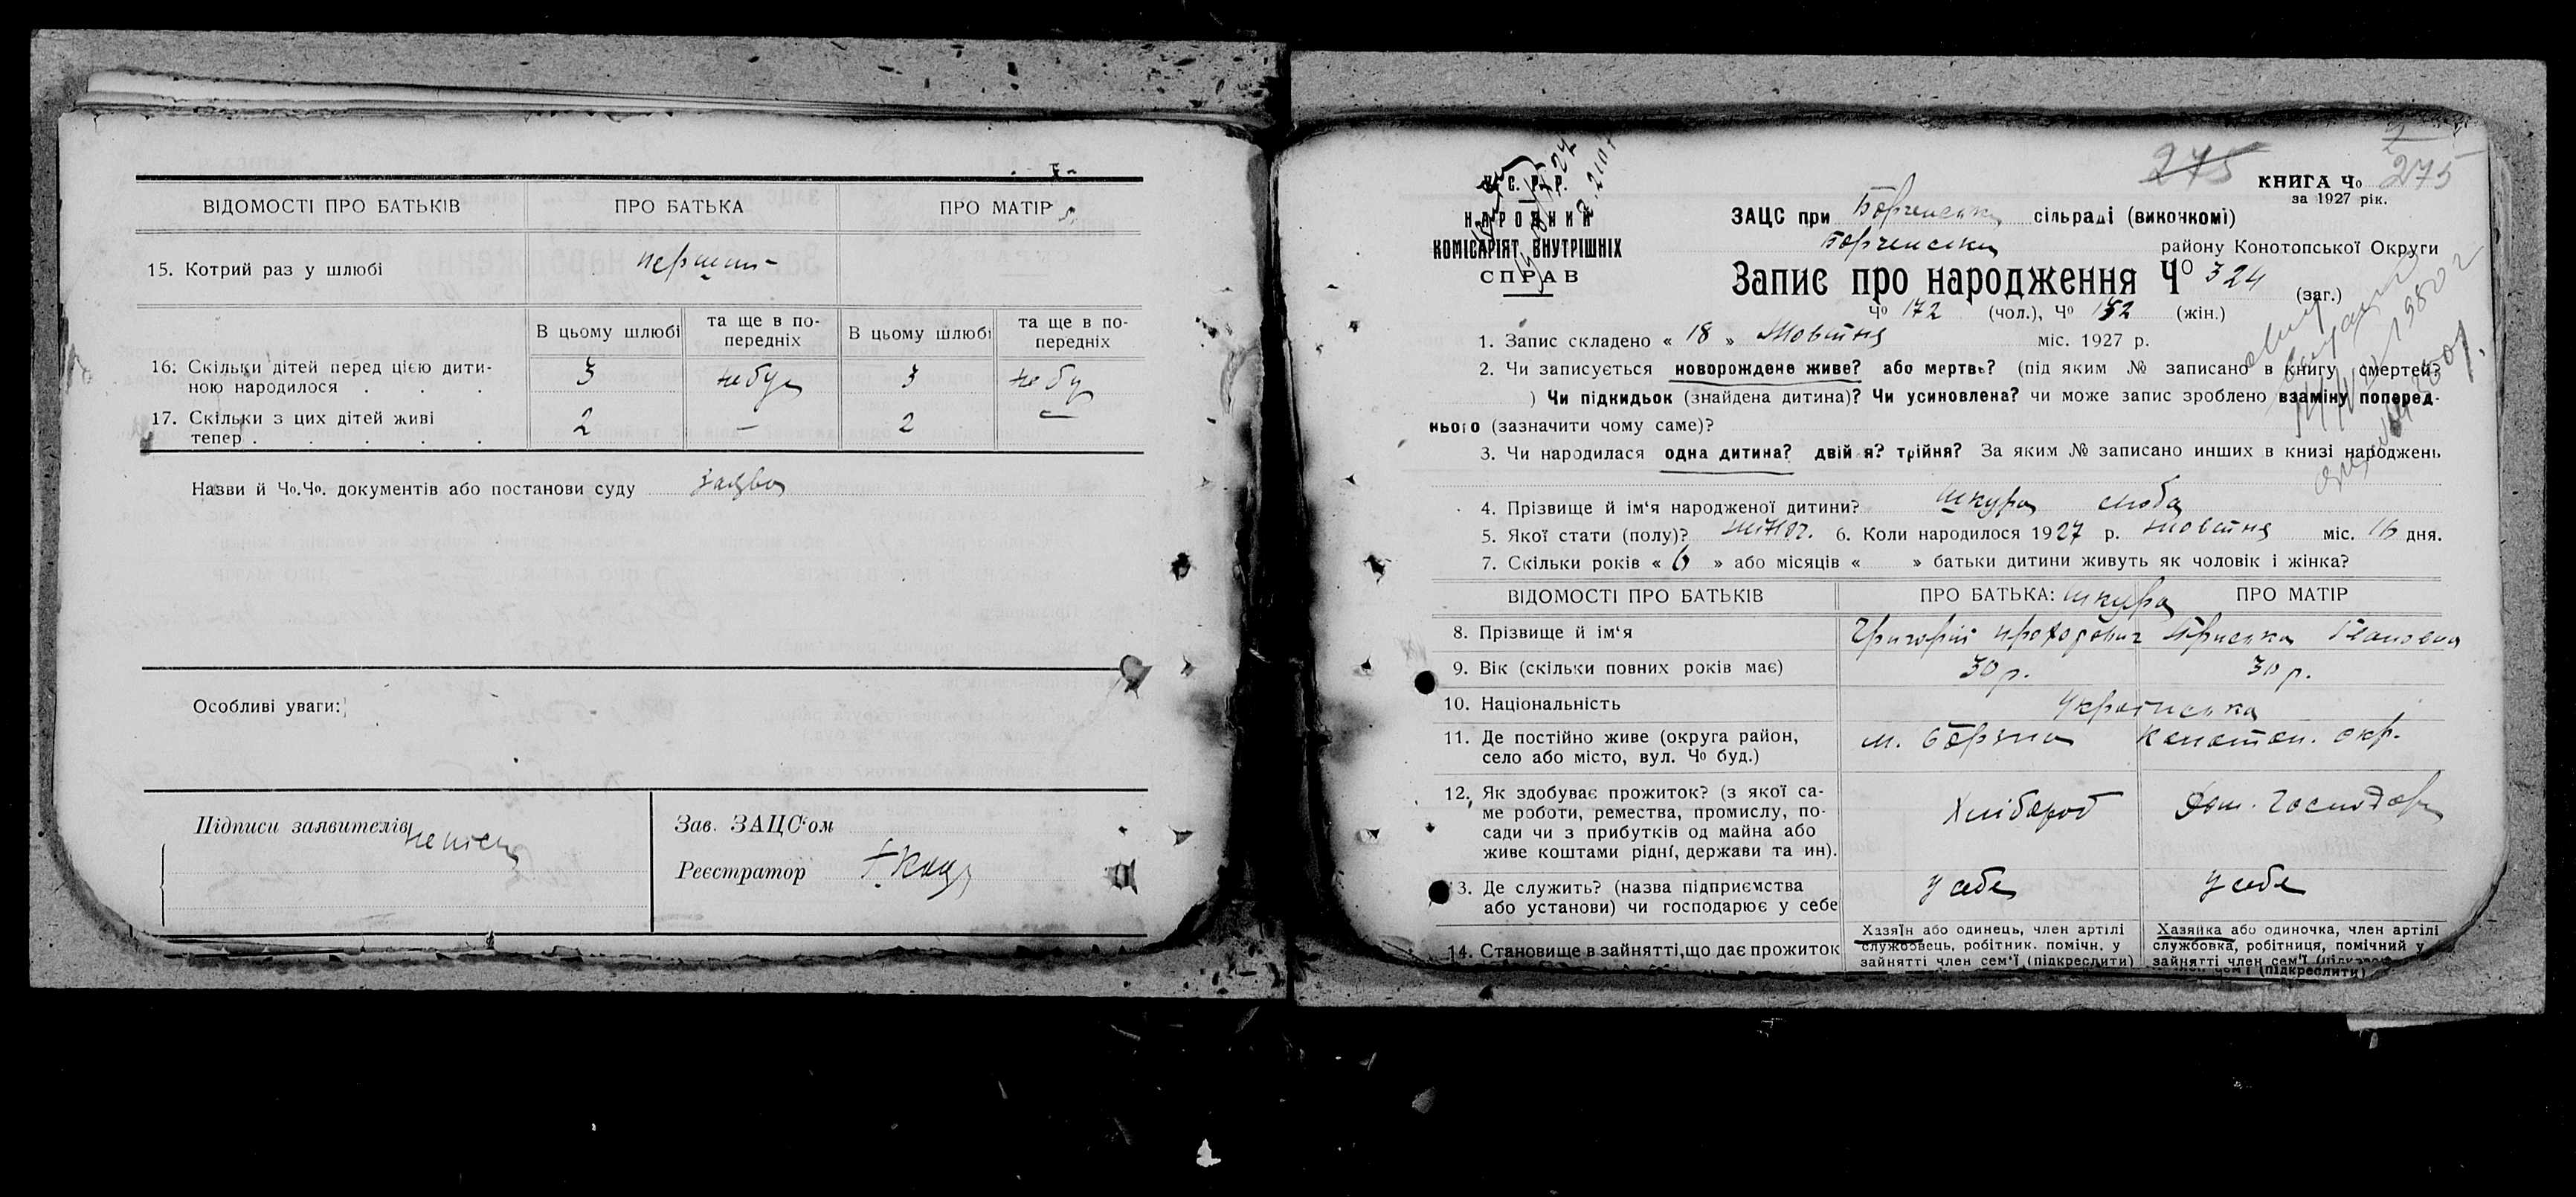 ВІДОМОСТІ ПРО БАТЬКІВ ПРО БАТЬКА ПРО МАТІР
15. Котрий раз у шлюбі
В цьому шлюбі та ще в по-передніх В цьому шлюбі та ще в по-передніх
16. Скільки дітей перед цією дити-
ною народилося . . . 3 небул 3 небул
17. Скільки з цих дітей живі
тепер . . . . . 2 — 2 —
Назви й Чо.Чо. документів або постанови суду заява
Особливі уваги:
Підписи заявителів
Зав. ЗАЦС'ом
Реєстратор
275
КНИГА Чо 275
за 1927 рік.
У. С. Р. Р.
НАРОДНИЙ
КОМІСАРІЯТ ВНУТРІШНІХ
СПРАВ
ЗАЦС при Борченськ сільраді (виконкомі)
Борченськ району Конотопської Округи
Запис про народження Чо 324 (заг.)
Чо 172 (чол.), Чо 152 (жін.)
1. Запис складено « 18 » Жовтня міс. 1927 р.
2. Чи записується новорождене живе? або мертве? (під яким № записано в книгу смертей?
) Чи підкидьок (знайдена дитина)? Чи усиновлена? чи може запис зроблено взаміну поперед-
нього (зазначити чому саме)?
3. Чи народилася одна дитина? двійня? трійня? За яким № записано инших в книзі народжень
4. Прізвище й ім'я народженої дитини? Шкура Люба
5. Якої стати (полу)? жіноч. 6. Коли народилося 1927 р. жовтня міс. 16 дня.
7. Скільки років « 6 » або місяців « » батьки дитини живуть як чоловік і жінка?
ВІДОМОСТІ ПРО БАТЬКІВ ПРО БАТЬКА: Шкура ПРО МАТІР
8. Прізвище й ім'я Григорій Прохорович
9. Вік (скільки повних років має) 30 р. 30 р.
10. Національність Українська
11. Де постійно живе (округа район, м. Борзна Конотоп. окр.
село або місто, вул. Чо буд.)
12. Як здобуває прожиток? (з якої са-
ме роботи, ремества, промислу, по- Хлібороб Дом. Господар
сади чи з прибутків од майна або
живе коштами рідні, держави та ин).
13. Де служить? (назва підприємства у себе у себе
або установи) чи господарює у себе
14. Становище в зайнятті, що дає прожиток
Хазяїн або одинець, член артілі
службовець, робітник. помічн. у
зайнятті член сем'ї (підкреслити)
Хазяйка або одиночка, член артілі
службовка, робітниця, помічний у
зайнятті член сем'ї